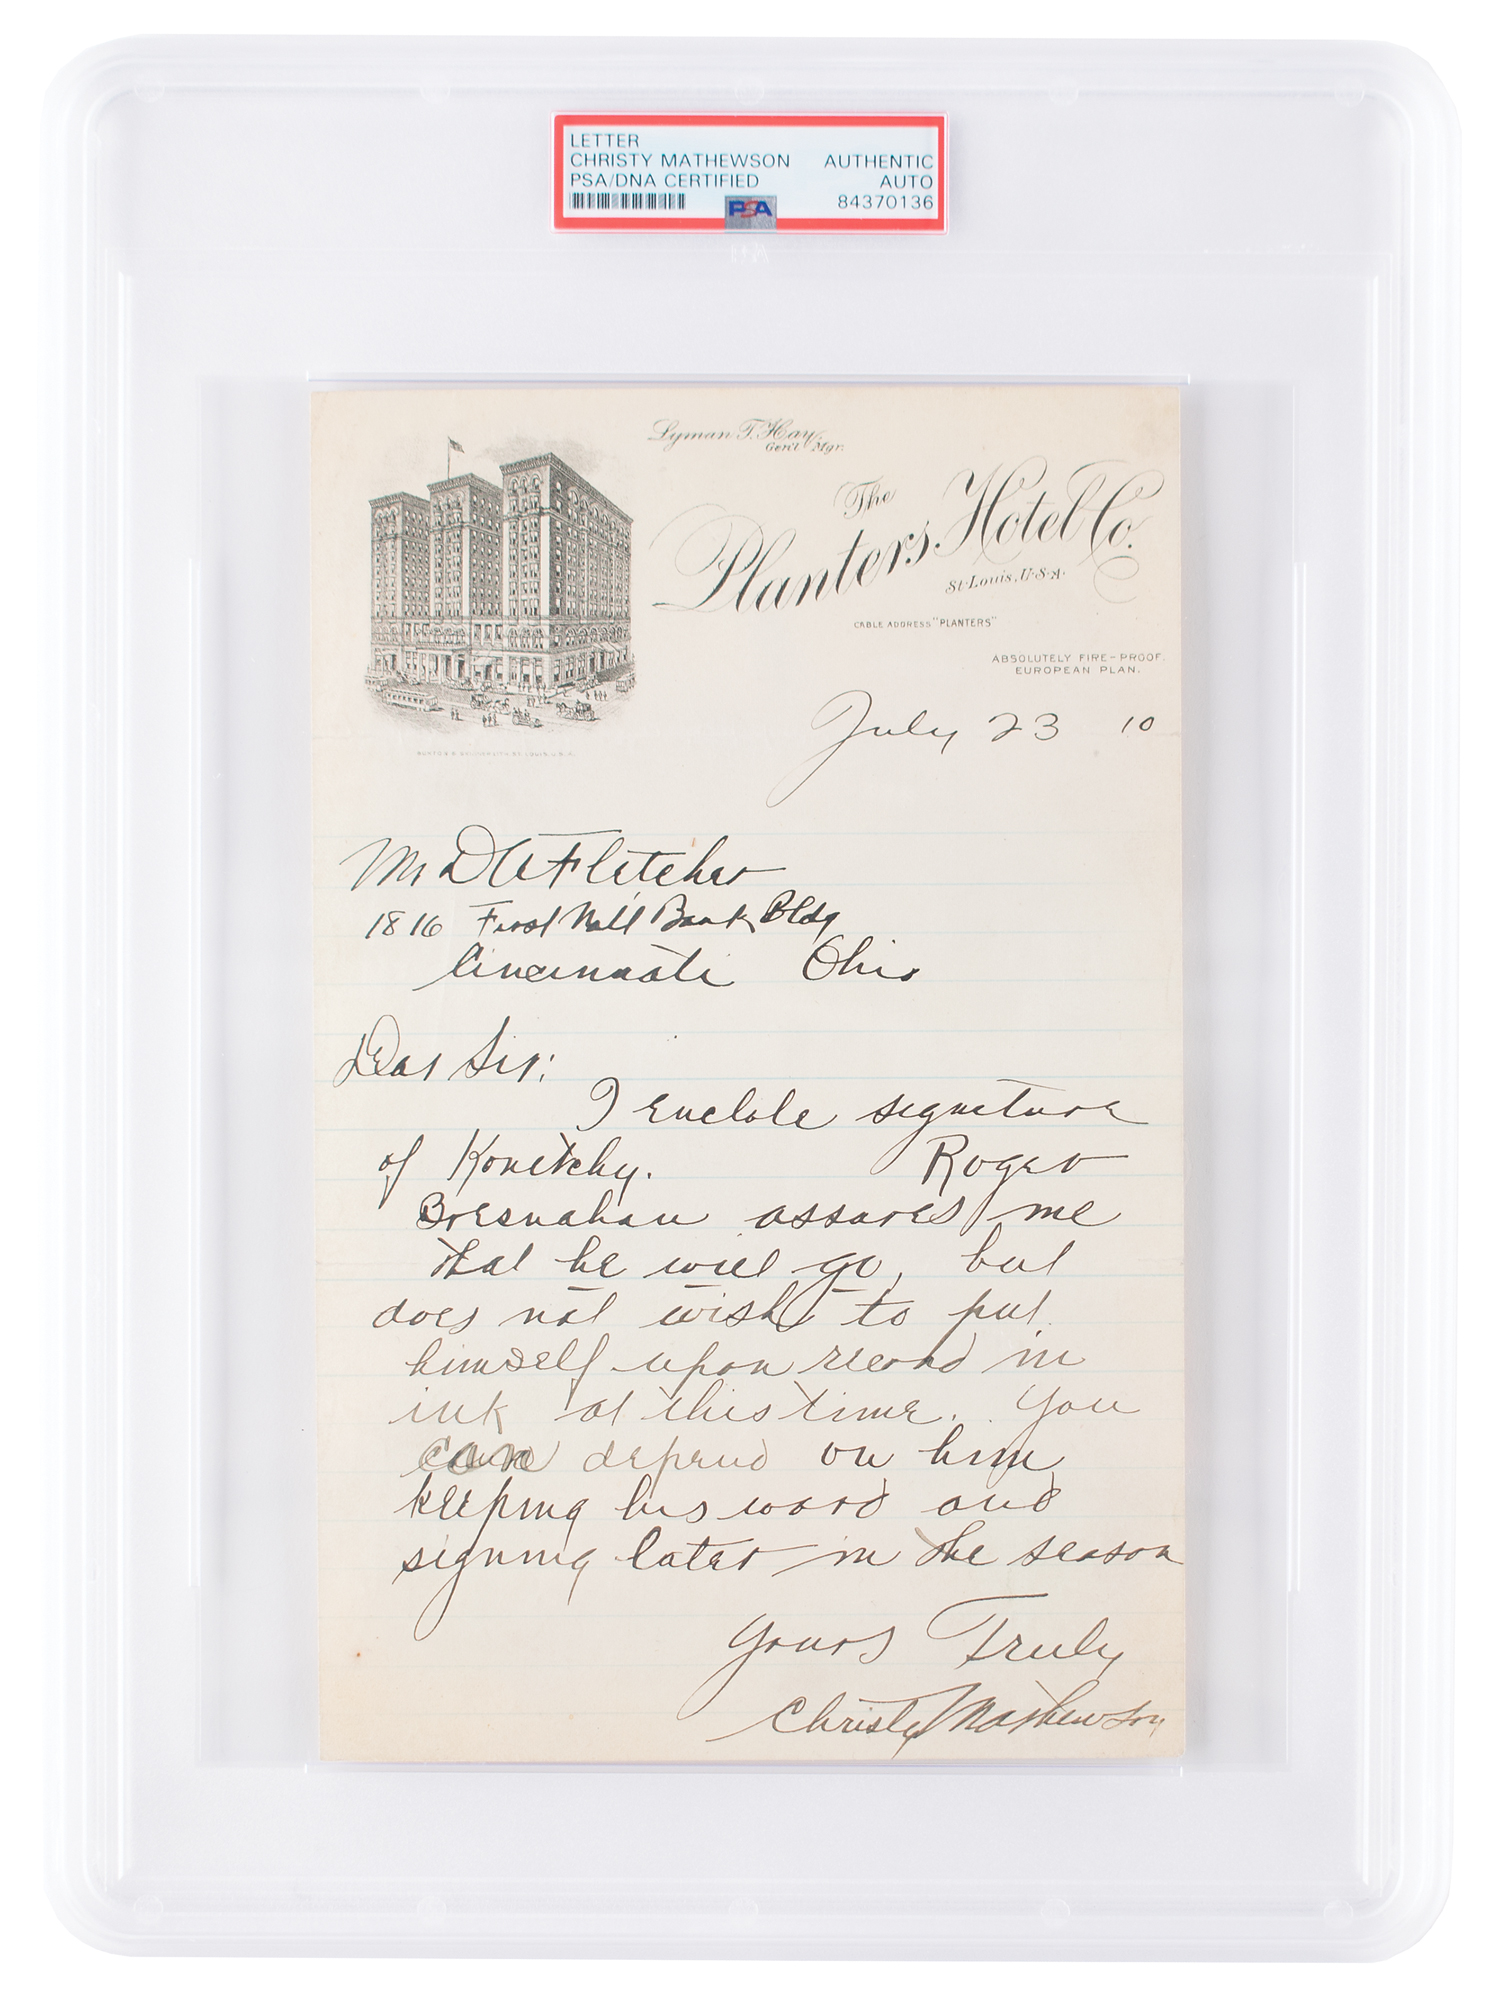 LETTER
CHRISTY MATHEWSON AUTHENTIC
PSA/DNA CERTIFIED AUTO
84370136
PSA
Lyman T. Hay,
Gen'l Mgr.
The
Planters Hotel Co.
St. Louis, U.S.A.
CABLE ADDRESS "PLANTERS"
ABSOLUTELY FIRE-PROOF.
EUROPEAN PLAN.
July 23 10
Mr D A Fletcher
1816 First Natl Bank Bldg
Cincinnati Ohio
Dear Sir:
I enclose signature
of Konetchy. Roger
Bresnahan assures me
that he will go, but
does not wish to put
himself upon record in
ink at this time. You
can depend on him
keeping his word and
signing later in the season
Yours Truly
Christy Mathewson